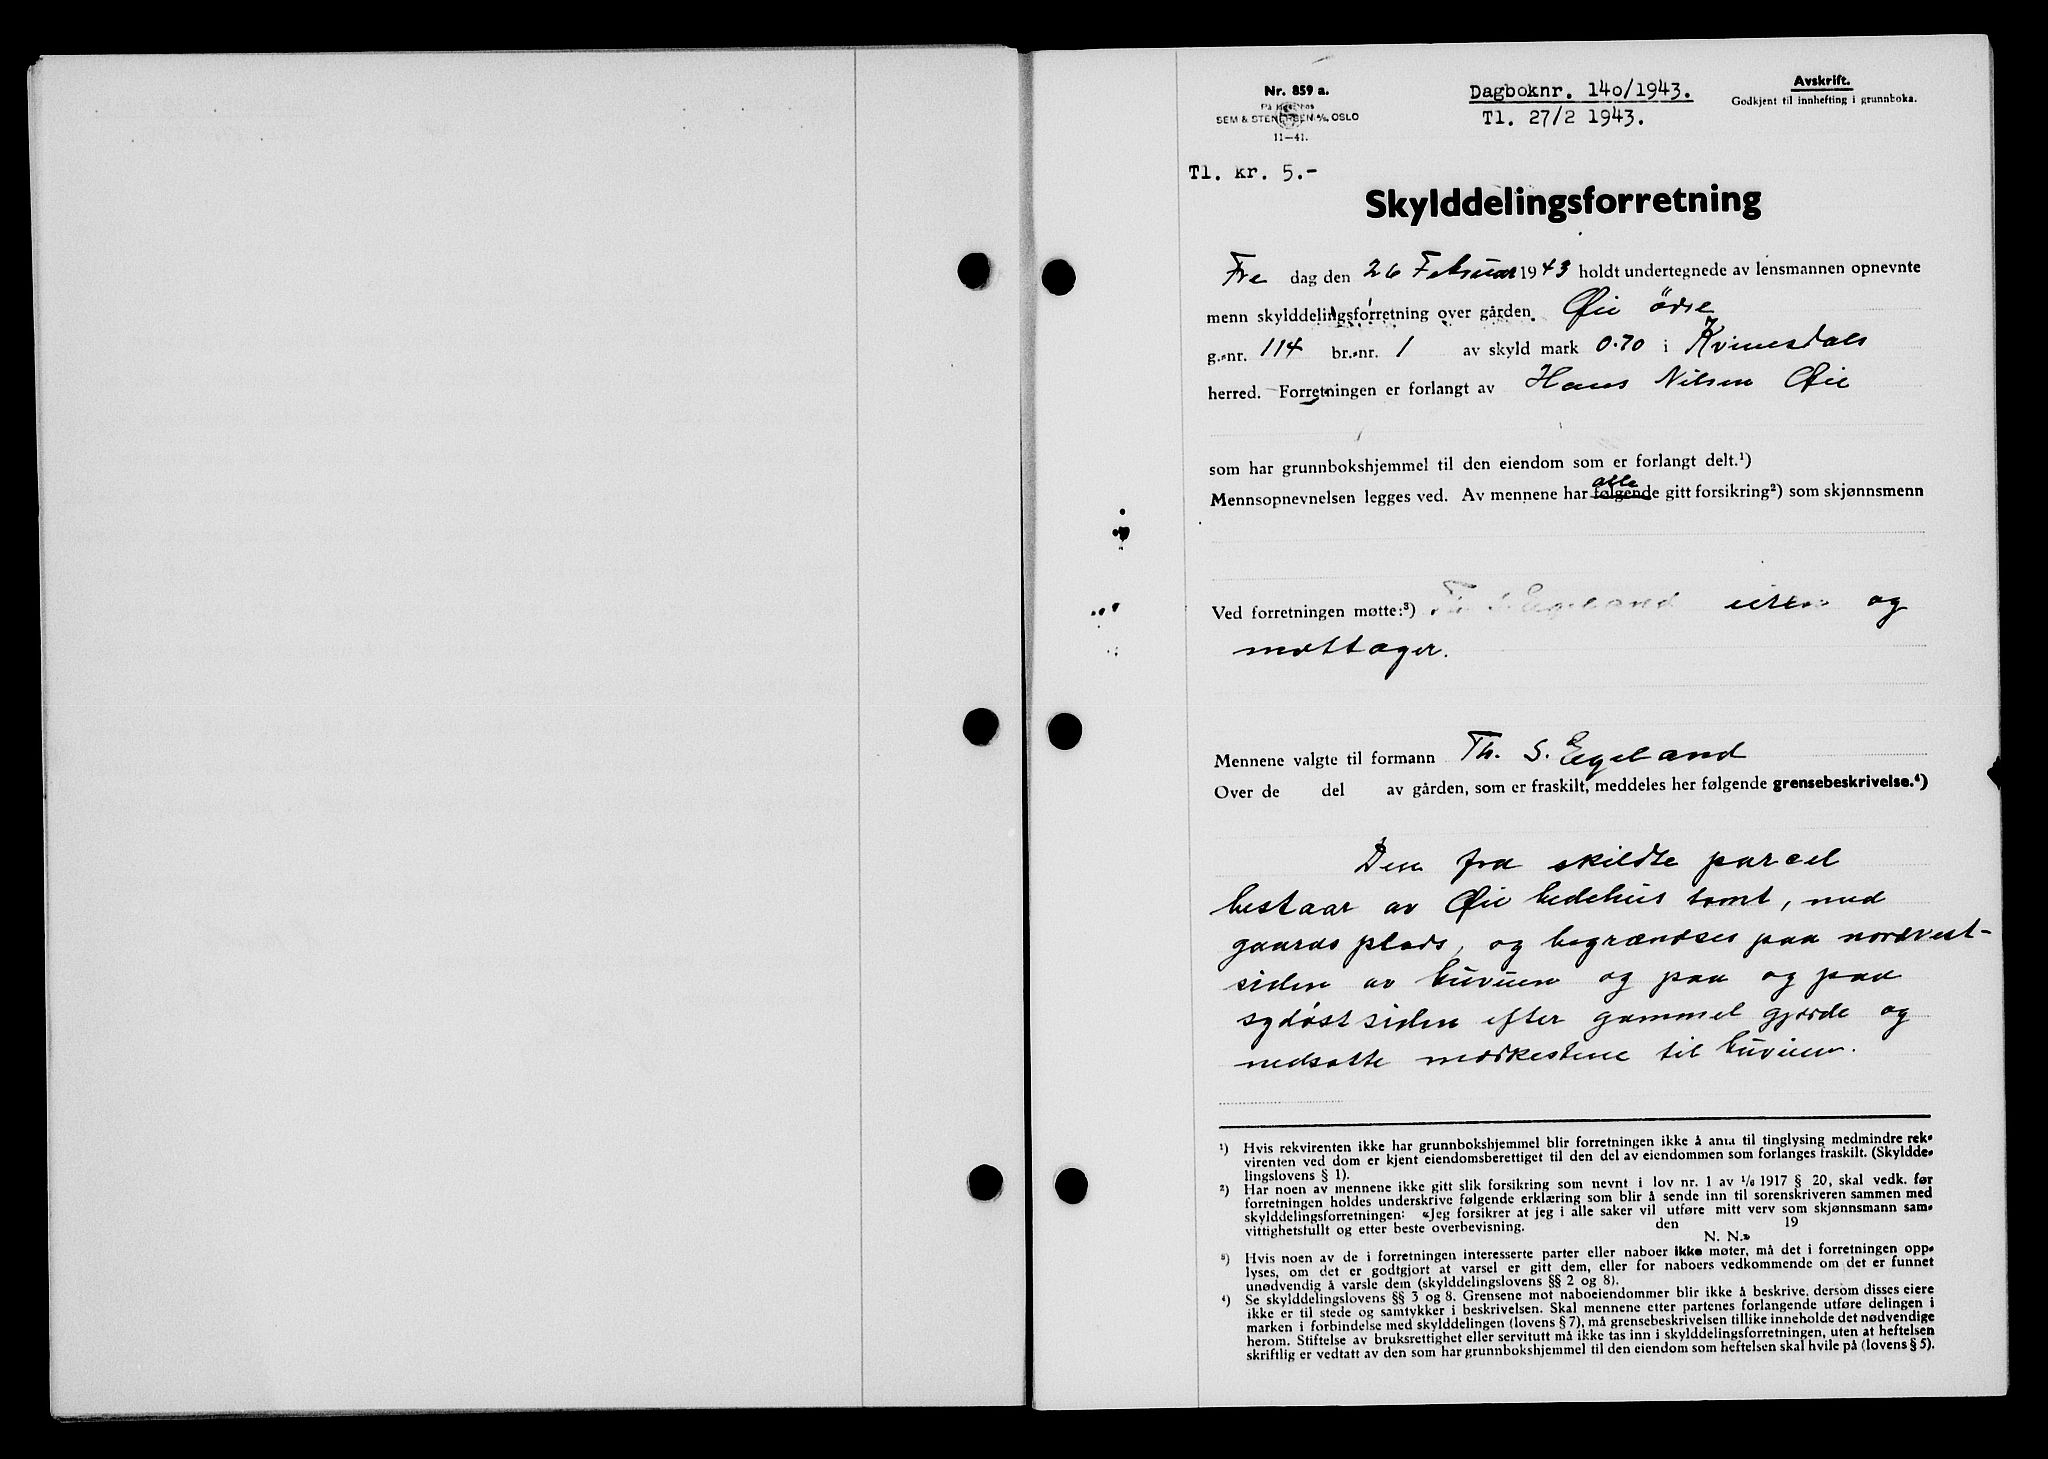 Nr. 859 a.
SEM & STENERSEN A/S, OSLO
11—41.
Dagboknr. 140/1943.
Tl. 27/2 1943.
Avskrift.
Godkjent til innhefting i grunnboka.
Tl. kr. 5.-
Skylddelingsforretning
Fre dag den 26 Februar 1943 holdt undertegnede av lensmannen opnevnte
menn skylddelingsforretning over gården Øie ødre
g.-nr. 114 br.-nr. 1 av skyld mark 0.70 i Kvinesdals
herred. Forretningen er forlangt av Hans Nilsen Øie
som har grunnbokshjemmel til den eiendom som er forlangt delt.¹)
alle
Mennsopnevnelsen legges ved. Av mennene har følgende gitt forsikring²) som skjønnsmenn
Ved forretningen møtte:³) Egeland eiren og
mottager.
Mennene valgte til formann Th. S. Egeland
Over de del av gården, som er fraskilt, meddeles her følgende grensebeskrivelse.⁴)
Den fra skildte parcel
bestaar av Øie bedehus tomt, med
gaards plads, og begrændses paa nordvest-
siden av buvuen og paa og paa
sydøst siden efter gammel gjerde og
nedsatte merkestene til buvuen.
¹) Hvis rekvirenten ikke har grunnbokshjemmel blir forretningen ikke å anta til tinglysing medmindre rek-
virenten ved dom er kjent eiendomsberettiget til den del av eiendommen som forlanges fraskilt. (Skyldde-
lingslovens § 1).
²) Har noen av mennene ikke gitt slik forsikring som nevnt i lov nr. 1 av 1/6 1917 § 20, skal vedk. før
forretningen holdes underskrive følgende erklæring som blir å sende inn til sorenskriveren sammen med
skylddelingsforretningen: «Jeg forsikrer at jeg i alle saker vil utføre mitt verv som skjønnsmann sam-
vittighetsfullt og etter beste overbevisning. den 19
N. N.»
³) Hvis noen av de i forretningen interesserte parter eller naboer ikke møter, må det i forretningen opp-
lyses, om det er godtgjort at varsel er gitt dem, eller for naboers vedkommende om det er funnet
unødvendig å varsle dem (skylddelingslovens §§ 2 og 8).
⁴) Se skylddelingslovens §§ 3 og 8. Grensene mot naboeiendommer blir ikke å beskrive, dersom disses eiere
ikke er til stede og samtykker i beskrivelsen. Skal mennene etter partenes forlangende utføre delingen i
marken i forbindelse med skylddelingen (lovens § 7), må grensebeskrivelsen tillike inneholde det nødvendige
herom. Stiftelse av bruksrettighet eller servitutt må ikke tas inn i skylddelingsforretningen, uten at heftelsen
skriftlig er vedtatt av den som har grunnbokshjemmel til den eiendom som heftelsen skal hvile på (lovens § 5).